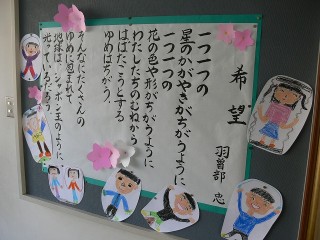 希望
羽曽部 忠
一つ一つの
星のかがやきがちがうように
一つ一つの
花の色や形がちがうように
わたしたちのむねから
はばたこうとする
ゆめはちがう。
そんなにたくさんの
ゆめに囲まれて
地球は、シャボン玉のように、
光っているだろう。